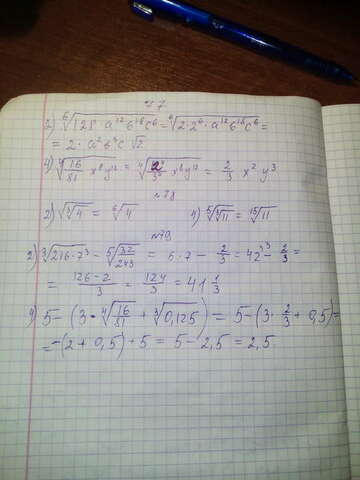 №77
2) ⁶√(128 · a¹² b¹⁸ c⁶) = ⁶√(2·2⁶ · a¹² b¹⁸ c⁶) =
= 2 · a² b³ c √2
4) ⁴√(16/81 x⁸ y¹²) = ⁴√(2⁴/3⁴ x⁸ y¹²) = 2/3 x² y³
№78
2) √(³√4) = ⁶√4    4) ⁵√(³√11) = ¹⁵√11
№79
2) ³√(216·7³) - ⁵√(32/243) = 6·7 - 2/3 = 42³ - 2/3 =
= (126-2)/3 = 124/3 = 41 1/3
4) 5 - (3 · ⁴√(16/81) + ³√0,125) = 5 - (3 · 2/3 + 0,5) =
= -(2 + 0,5) + 5 = 5 - 2,5 = 2,5